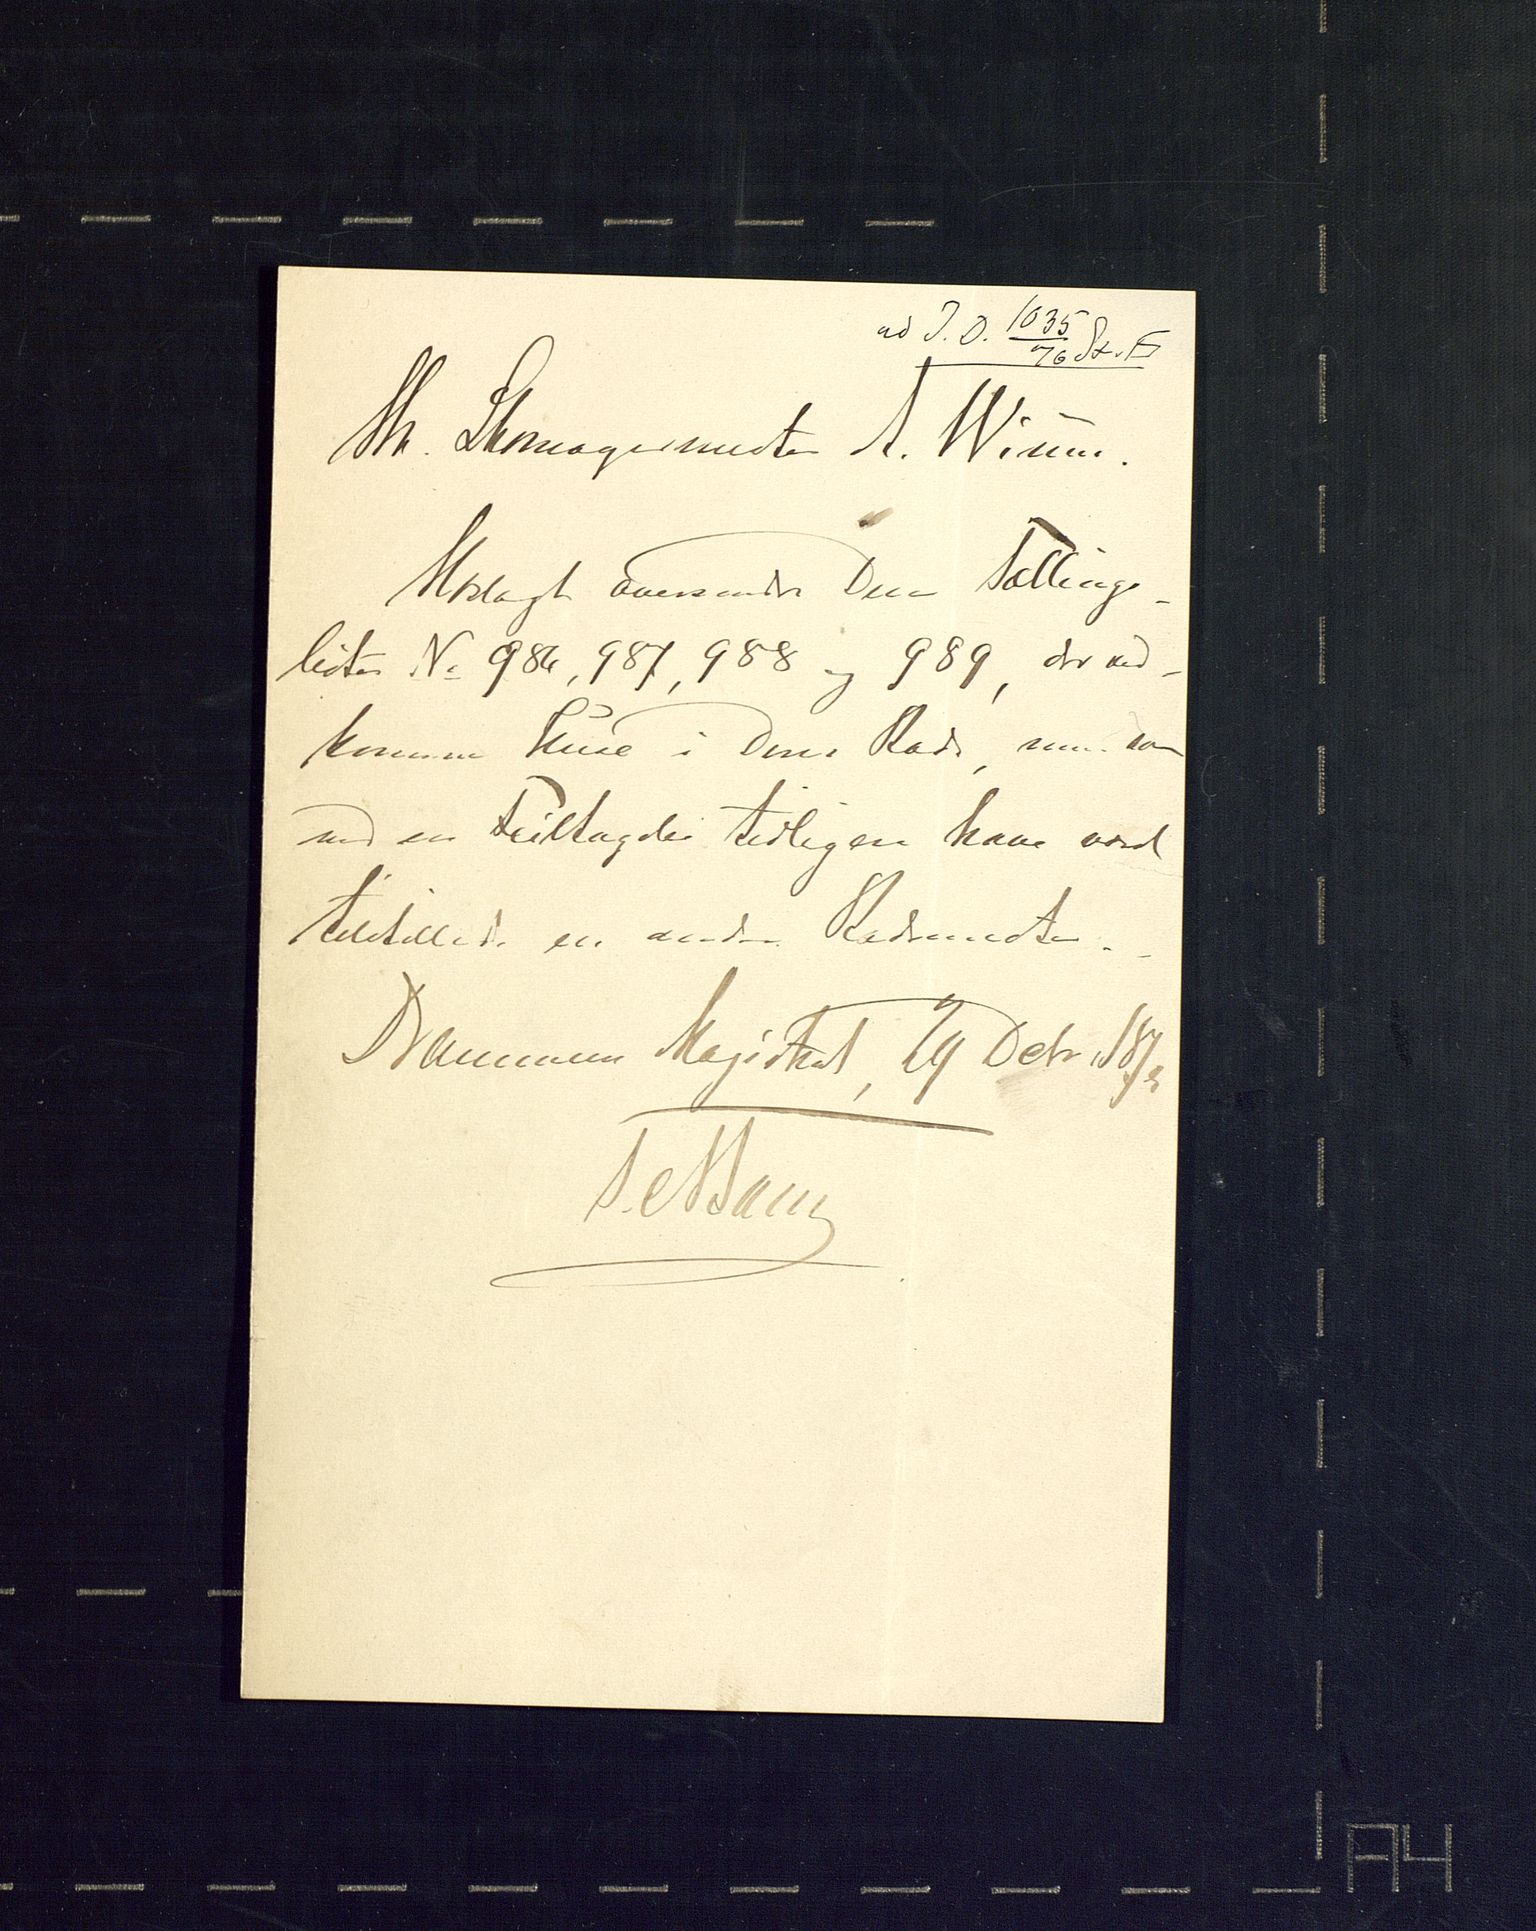 ad J. D. 1035/76 St. E
Hr. Skomagermester A. Wiium.
Vedlagt oversendes Dem Tællings-
lister No 986, 987, 988 og 989, der ved-
komme Huse i Deres Rode, men som
ved en Feiltagelse tidligere have været
tilstillede en anden Rodemester. -
Drammens Magistrat, 29 Decbr 1875
A4